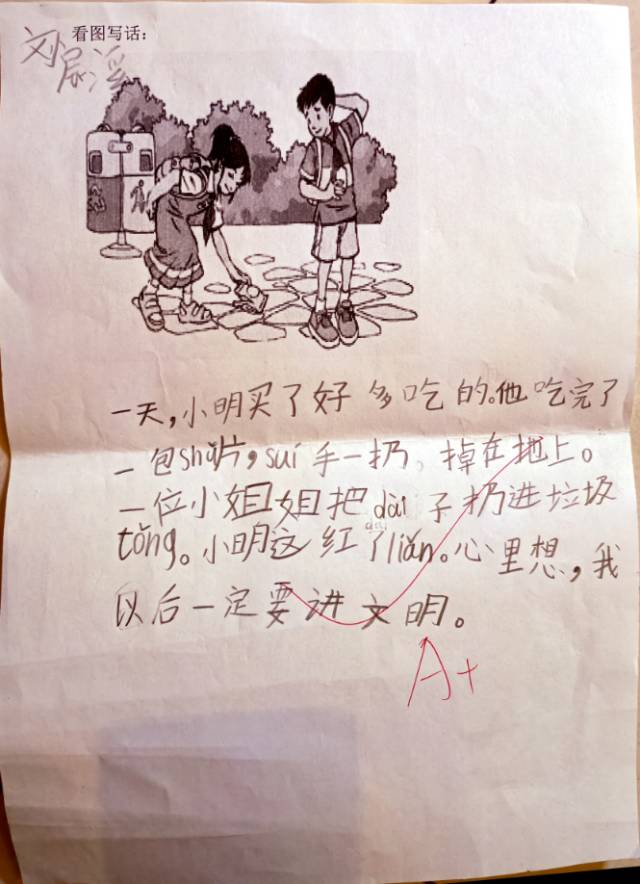 看图写话：
刘辰溪
一天，小明买了好多吃的。他吃完了
一包shǔ片，suí手一扔，掉在地上。
一位小姐姐把dài子扔进垃圾
tǒng。小明这红了liǎn。心里想，我
以后一定要讲文明。
A+